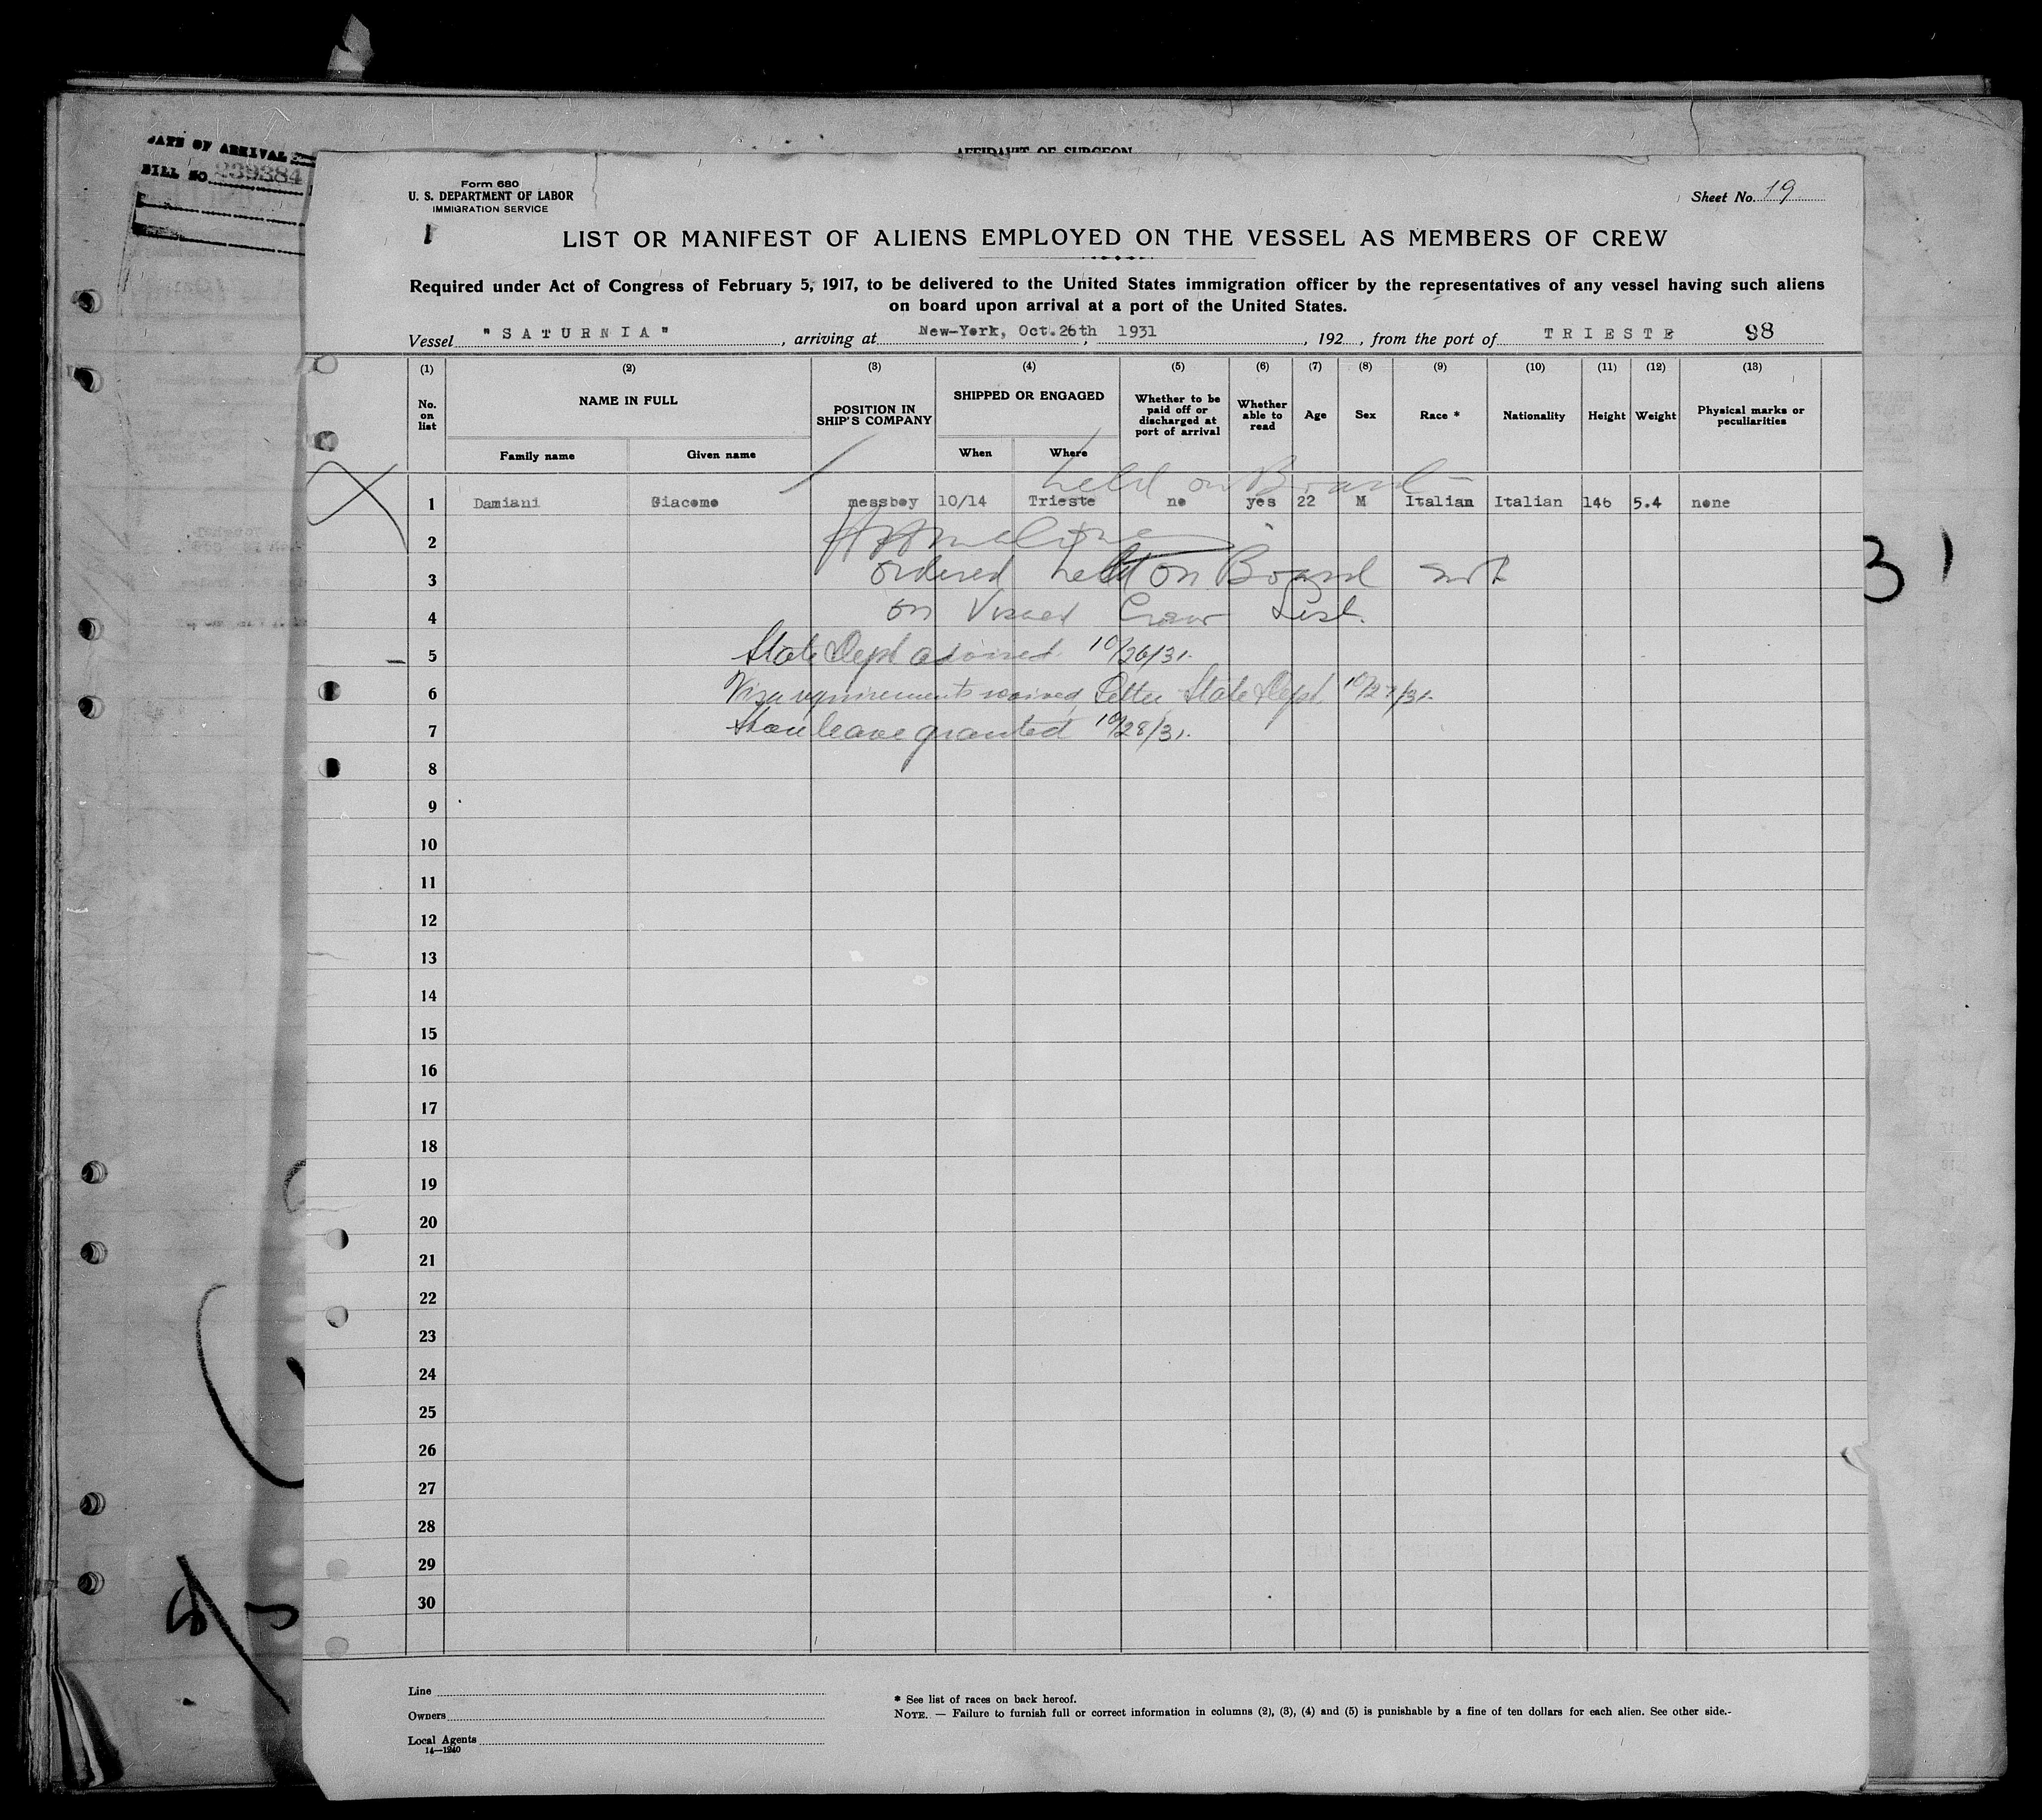 DATE OF ARRIVAL
BILL NO. 239384
AFFIDAVIT OF SURGEON
Form 680
U. S. DEPARTMENT OF LABOR
IMMIGRATION SERVICE
Sheet No. 19
LIST OR MANIFEST OF ALIENS EMPLOYED ON THE VESSEL AS MEMBERS OF CREW
Required under Act of Congress of February 5, 1917, to be delivered to the United States immigration officer by the representatives of any vessel having such aliens
on board upon arrival at a port of the United States.
Vessel "SATURNIA", arriving at New-York, Oct.26th 1931, 192 , from the port of TRIESTE 98
(1) (2) (3) (4) (5) (6) (7) (8) (9) (10) (11) (12) (13)
No. on list NAME IN FULL POSITION IN SHIP'S COMPANY SHIPPED OR ENGAGED Whether to be paid off or discharged at port of arrival Whether able to read Age Sex Race * Nationality Height Weight Physical marks or peculiarities
Family name Given name When Where
held on Board
1 Damiani Giacomo messboy 10/14 Trieste no yes 22 M Italian Italian 146 5.4 none
2
3 ordered held on Board not
4 on Visaed Crew List.
5 State Dept advised 10/26/31.
6 Visa requirements waived Letter State Dept. 10/27/31.
7 Shore leave granted 10/28/31.
8
9
10
11
12
13
14
15
16
17
18
19
20
21
22
23
24
25
26
27
28
29
30
31
Line
Owners
Local Agents
14—1240
* See list of races on back hereof.
NOTE. — Failure to furnish full or correct information in columns (2), (3), (4) and (5) is punishable by a fine of ten dollars for each alien. See other side.